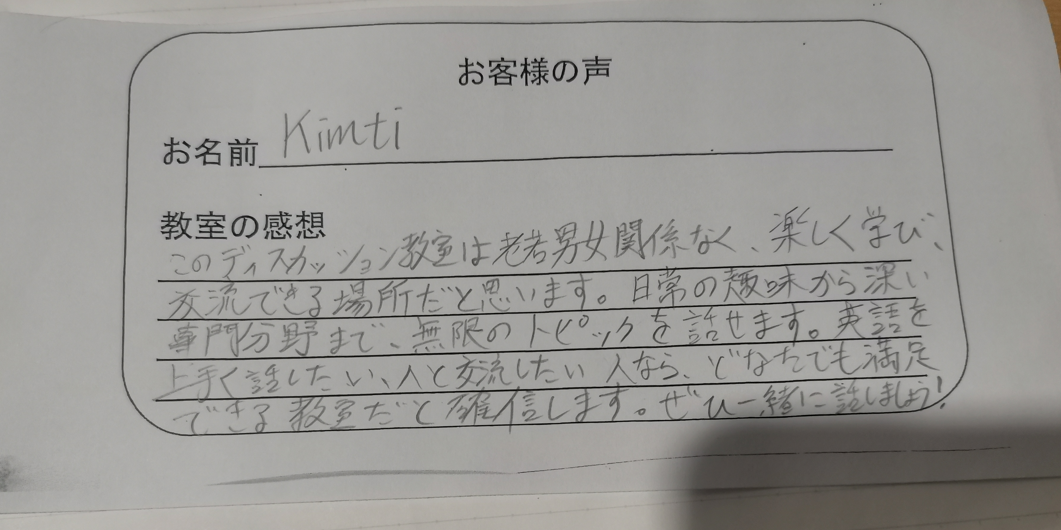 お客様の声
お名前 Kimti
教室の感想
このディスカッション教室は老若男女関係なく、楽しく学び、
交流できる場所だと思います。日常の趣味から深い
専門分野まで、無限のトピックを話せます。英語を
上手く話したい、人と交流したい人なら、どなたでも満足
できる教室だと確信します。ぜひ一緒に話しましょう!